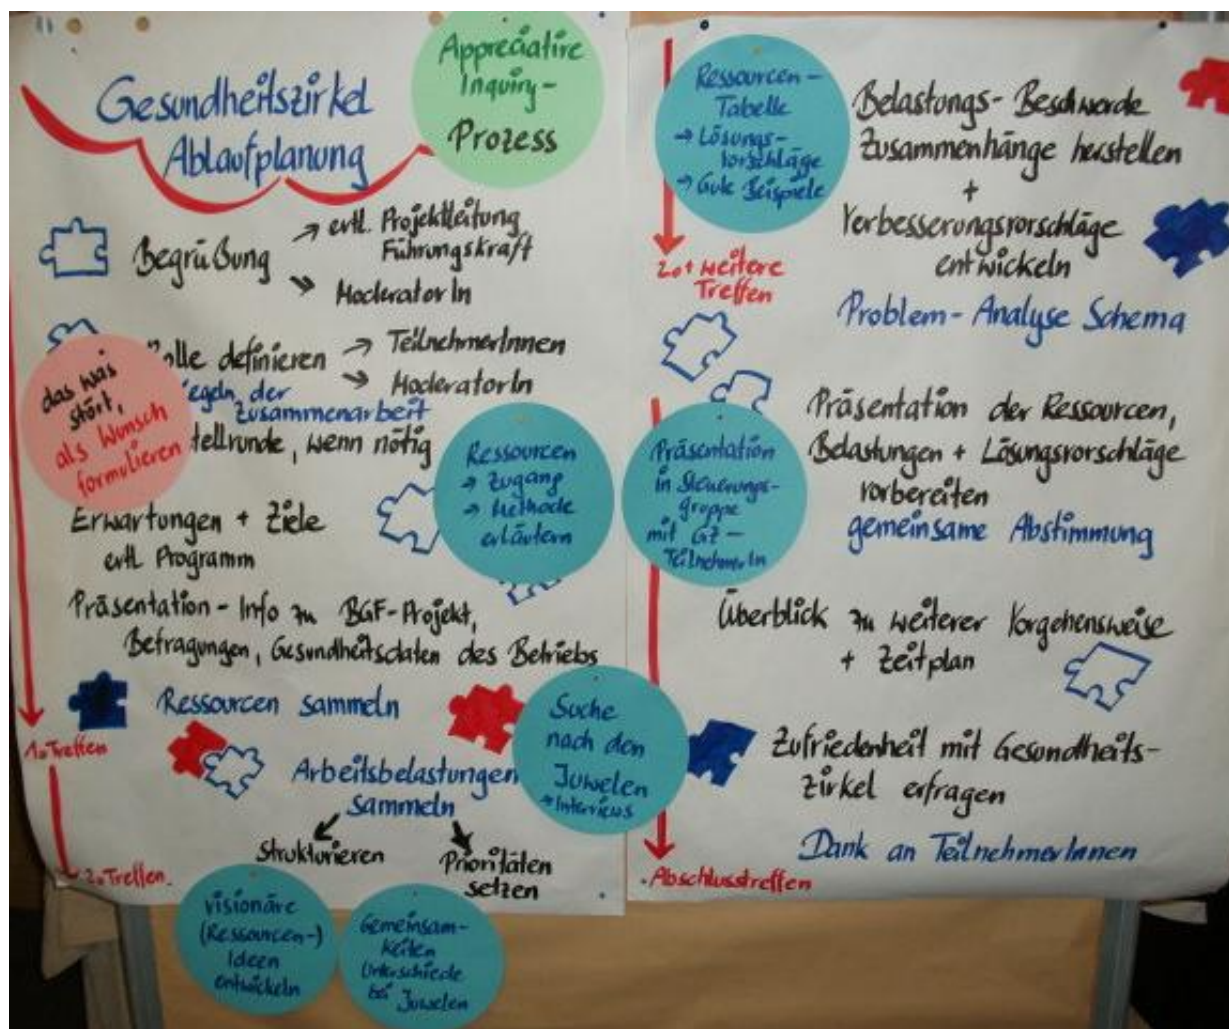 Gesundheitszirkel
Ablaufplanung
Appreciative
Inquiry-
Prozess
Begrüßung
→ evtl. Projektleitung
Führungskraft
→ ModeratorIn
Rolle definieren
→ TeilnehmerInnen
→ ModeratorIn
egeln der
Zusammenarbeit
tellrunde, wenn nötig
das was
stört,
als Wunsch
formulieren
Ressourcen
→ Zugang
→ Methode
erläutern
Erwartungen + Ziele
evtl. Programm
Präsentation - Info zu BGF-Projekt,
Befragungen, Gesundheitsdaten des Betriebs
Ressourcen sammeln
1. Treffen
Arbeitsbelastungen
sammeln
Suche
nach den
Juwelen
→ Interviews
Strukturieren
Prioritäten
setzen
2. Treffen
visionäre
(Ressourcen-)
Ideen
entwickeln
Gemeinsam-
keiten
Unterschiede
bei Juwelen
Ressourcen-
Tabelle
→ Lösungs-
vorschläge
→ Gute Beispiele
Belastungs- Beschwerde
Zusammenhänge herstellen
+
Verbesserungsvorschläge
entwickeln
2. + weitere
Treffen
Problem- Analyse Schema
Präsentation
in Steuerungs-
gruppe
mit GZ-
TeilnehmerIn
Präsentation der Ressourcen,
Belastungen + Lösungsvorschläge
vorbereiten
gemeinsame Abstimmung
Überblick zu weiterer Vorgehensweise
+ Zeitplan
Zufriedenheit mit Gesundheits-
zirkel erfragen
Dank an TeilnehmerInnen
Abschlusstreffen